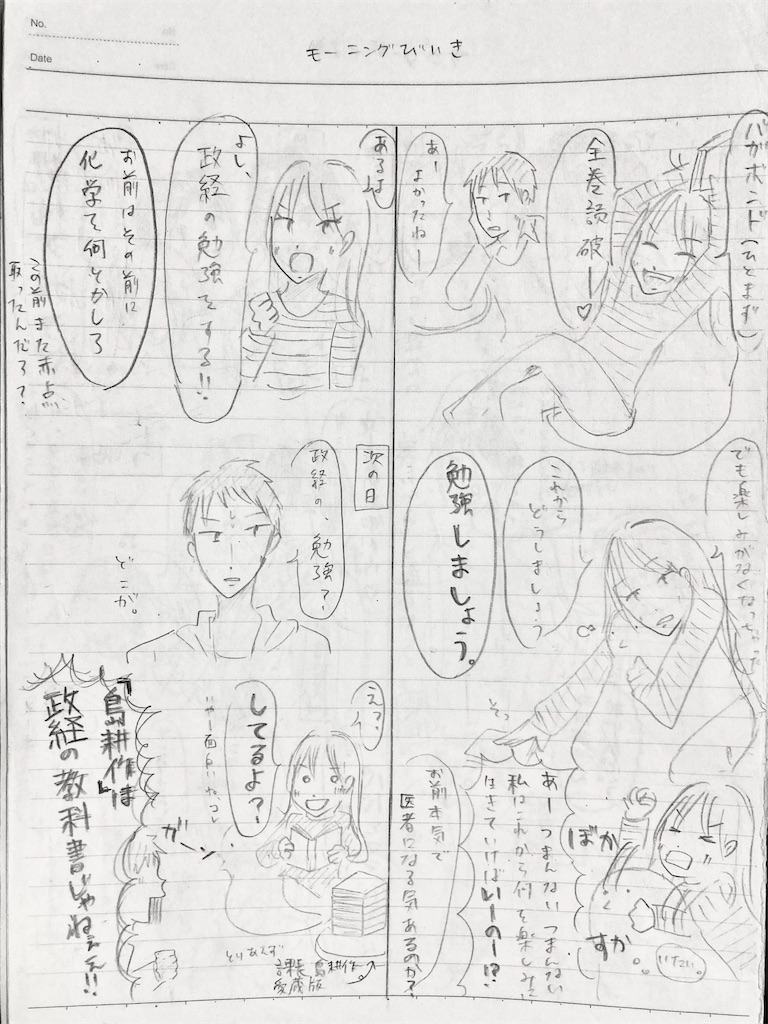 No.
Date
モーニングびいき
バガボンド(ひとまず)
全巻読破ー♡
あー
よかったねー
でも楽しみがなくなっちゃった
これから
どうしましょう
勉強しましょう。
そっ
ぽか
すか
いたい
あーつまんないつまんない
私はこれから何を楽しみに
生きていけばいーのー!?
お前本気で
医者になる気あるのか?
あるよ
よし、
政経の勉強をする!!
お前はその前に
化学を何とかしろ
この前また赤点
取ったんだろ?
次の日
政経の、勉強?
どこが。
えっ?
してるよ?
いやー面白いねっコレ
とりあえず
課長島耕作
愛蔵版
ガーン
『島耕作』は
政経の教科書じゃねぇえ!!